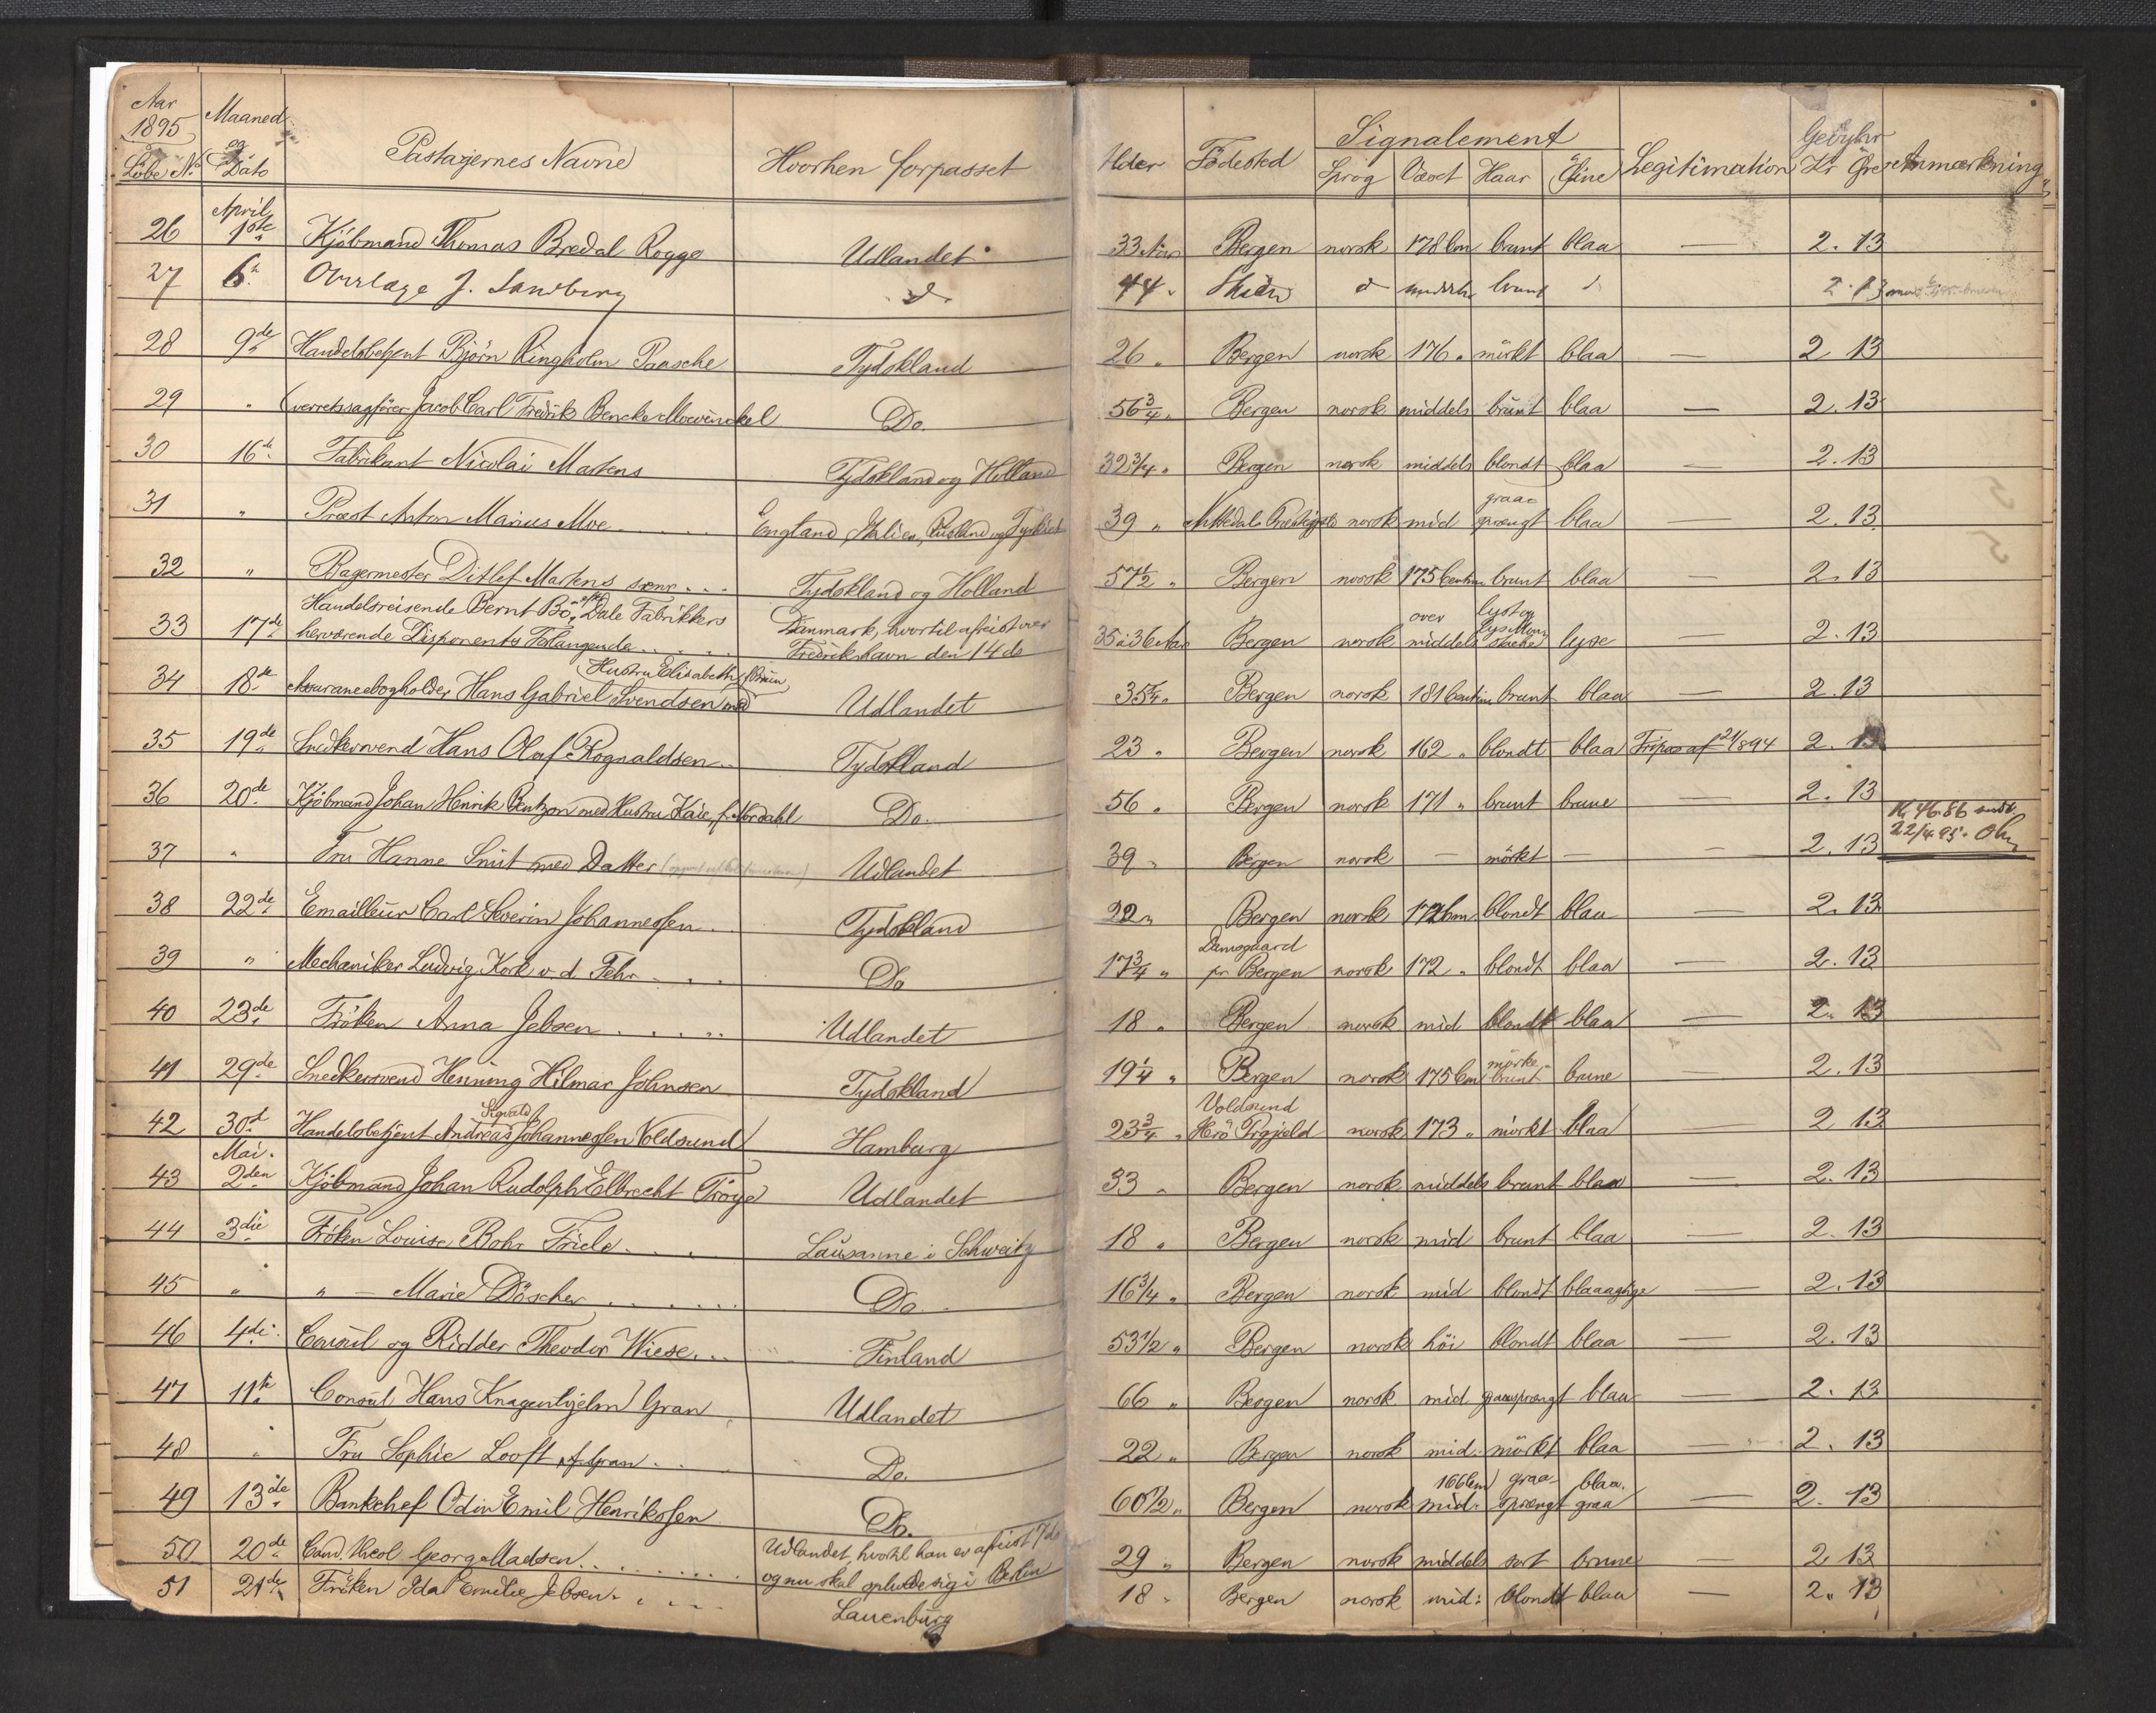 Aar 1895 Löbe No. Maaned og Dato Passagernes Navne Hvorhen forpasset Alder Födested Signalement Sprog Væxt Haar Öine Legitimation Gebyhr Kr Øre Anmærkning
April
26 1ste Kjöbmand Thomas Bredal Rogge Udlandet 33 Aar Bergen norsk 178 Cm brunt blaa — 2. 13
27 6te Overlæge J. Sandberg do. 44 " Skien d middels brunt d 2. 13
28 9de Handelsbetjent Björn Ringholm Paasche Tydskland 26 " Bergen norsk 176 " mörkt blaa — 2 13
29 " Overretssagförer Jacob Carl Fredrik Bencke Mowinckel Do. 56 3/4 " Bergen norsk middels brunt blaa — 2. 13
30 16de Fabrikant Nicolai Martens Tydskland og Holland 32 3/4 " Bergen norsk middels blondt blaa — 2. 13
31 " Præst Anton Marius Moe England, Italien, Rusland og Tyrkiet 39 " norsk mid graasprængt blaa — 2. 13
32 " Bagermester Ditlef Martens senr. Tydskland og Holland 57 1/2 " Bergen norsk 175 Centim brunt blaa — 2. 13
Handelsreisende Bernt Bö, efter Dale Fabrikkers Danmark, hvortil afreist over
33 17de herværende Disponents Forlangende Fredrikshavn den 14de 35 à 36 Aar Bergen norsk over middels lyst og lyse lyse — 2. 13
Hustru Elisabeth
34 18de Assuranceebogholder Hans Gabriel Svendsen med Udlandet 35 3/4 " Bergen norsk 181 Centim brunt blaa — 2. 13
35 19de Snedkersvend Hans Olaf Rognaldsen Tydskland 23 " Bergen norsk 162 " blondt blaa Fripas af 2. 13
36 20de Kjöbmand Johan Henrik Bentzon med Hustru Kaia, f. Nordahl Do. 56 " Bergen norsk 171 " brunt brune — 2. 13
Kr. 46.86 indb.
22/4 95.
37 " Fru Hanne Smit med Datter Udlandet 39 " Bergen norsk — mörkt — — 2. 13
38 22de Emailleur Carl Severin Johannessen Tydskland 22 " Bergen norsk 172 Cm blondt blaa — 2. 13
39 " Mechaniker Ludvig Kork v. d. Fehr Do 17 3/4 " Damsgaard pr Bergen norsk 172 " blondt blaa — 2. 13
40 23de Fröken Anna Jebsen Udlandet 18 " Bergen norsk mid blondt blaa — 2. 13
41 29de Snedkersvend Henning Hilmar Johnsen Tydskland 19 1/4 " Bergen norsk 175 Cm mörke brunt brune — 2. 13
42 30te Handelsbetjent Andreas Sigvald Johannessen Voldsund Hamburg 23 3/4 " Voldsund Herö Prgjeld norsk 173 " mörkt blaa — 2 13
Mai.
43 2den Kjöbmand Johan Rudolph Elbrecht Tröye Udlandet 33 " Bergen norsk middels brunt blaa — 2. 13
44 3die Fröken Louise Bohr Friele Lausanne i Schweitz 18 " Bergen norsk mid brunt blaa — 2. 13
45 " " — Marie Döscher Do 16 3/4 " Bergen norsk mid blondt blaaagtige — 2. 13
46 4de Consul og Ridder Theodor Wiese Finland 53 1/2 " Bergen norsk höi blondt blaa — 2. 13
47 11te Consul Hans Knagenhjelm Gran Udlandet 66 " Bergen norsk mid graasprængt blaa — 2. 13
48 " Fru Sophie Looft, f. Gran Do. 22 " Bergen norsk mid. mörkt blaa — 2. 13
49 13de Bankchef Odin Emil Henrikssen Do. 60 1/2 " Bergen norsk 166 Cm mid. graasprængt blaa graa — 2. 13
50 20de Cand. theol Georg Madsen Udlandet, hvortil han er afreist 7de og nu skal opholde sig i Berlin 29 " Bergen norsk middels sort brune — 2 13
51 21de Fröken Ida Emilie Jebsen Lauenburg 18 " Bergen norsk mid: blondt blaa — 2. 13